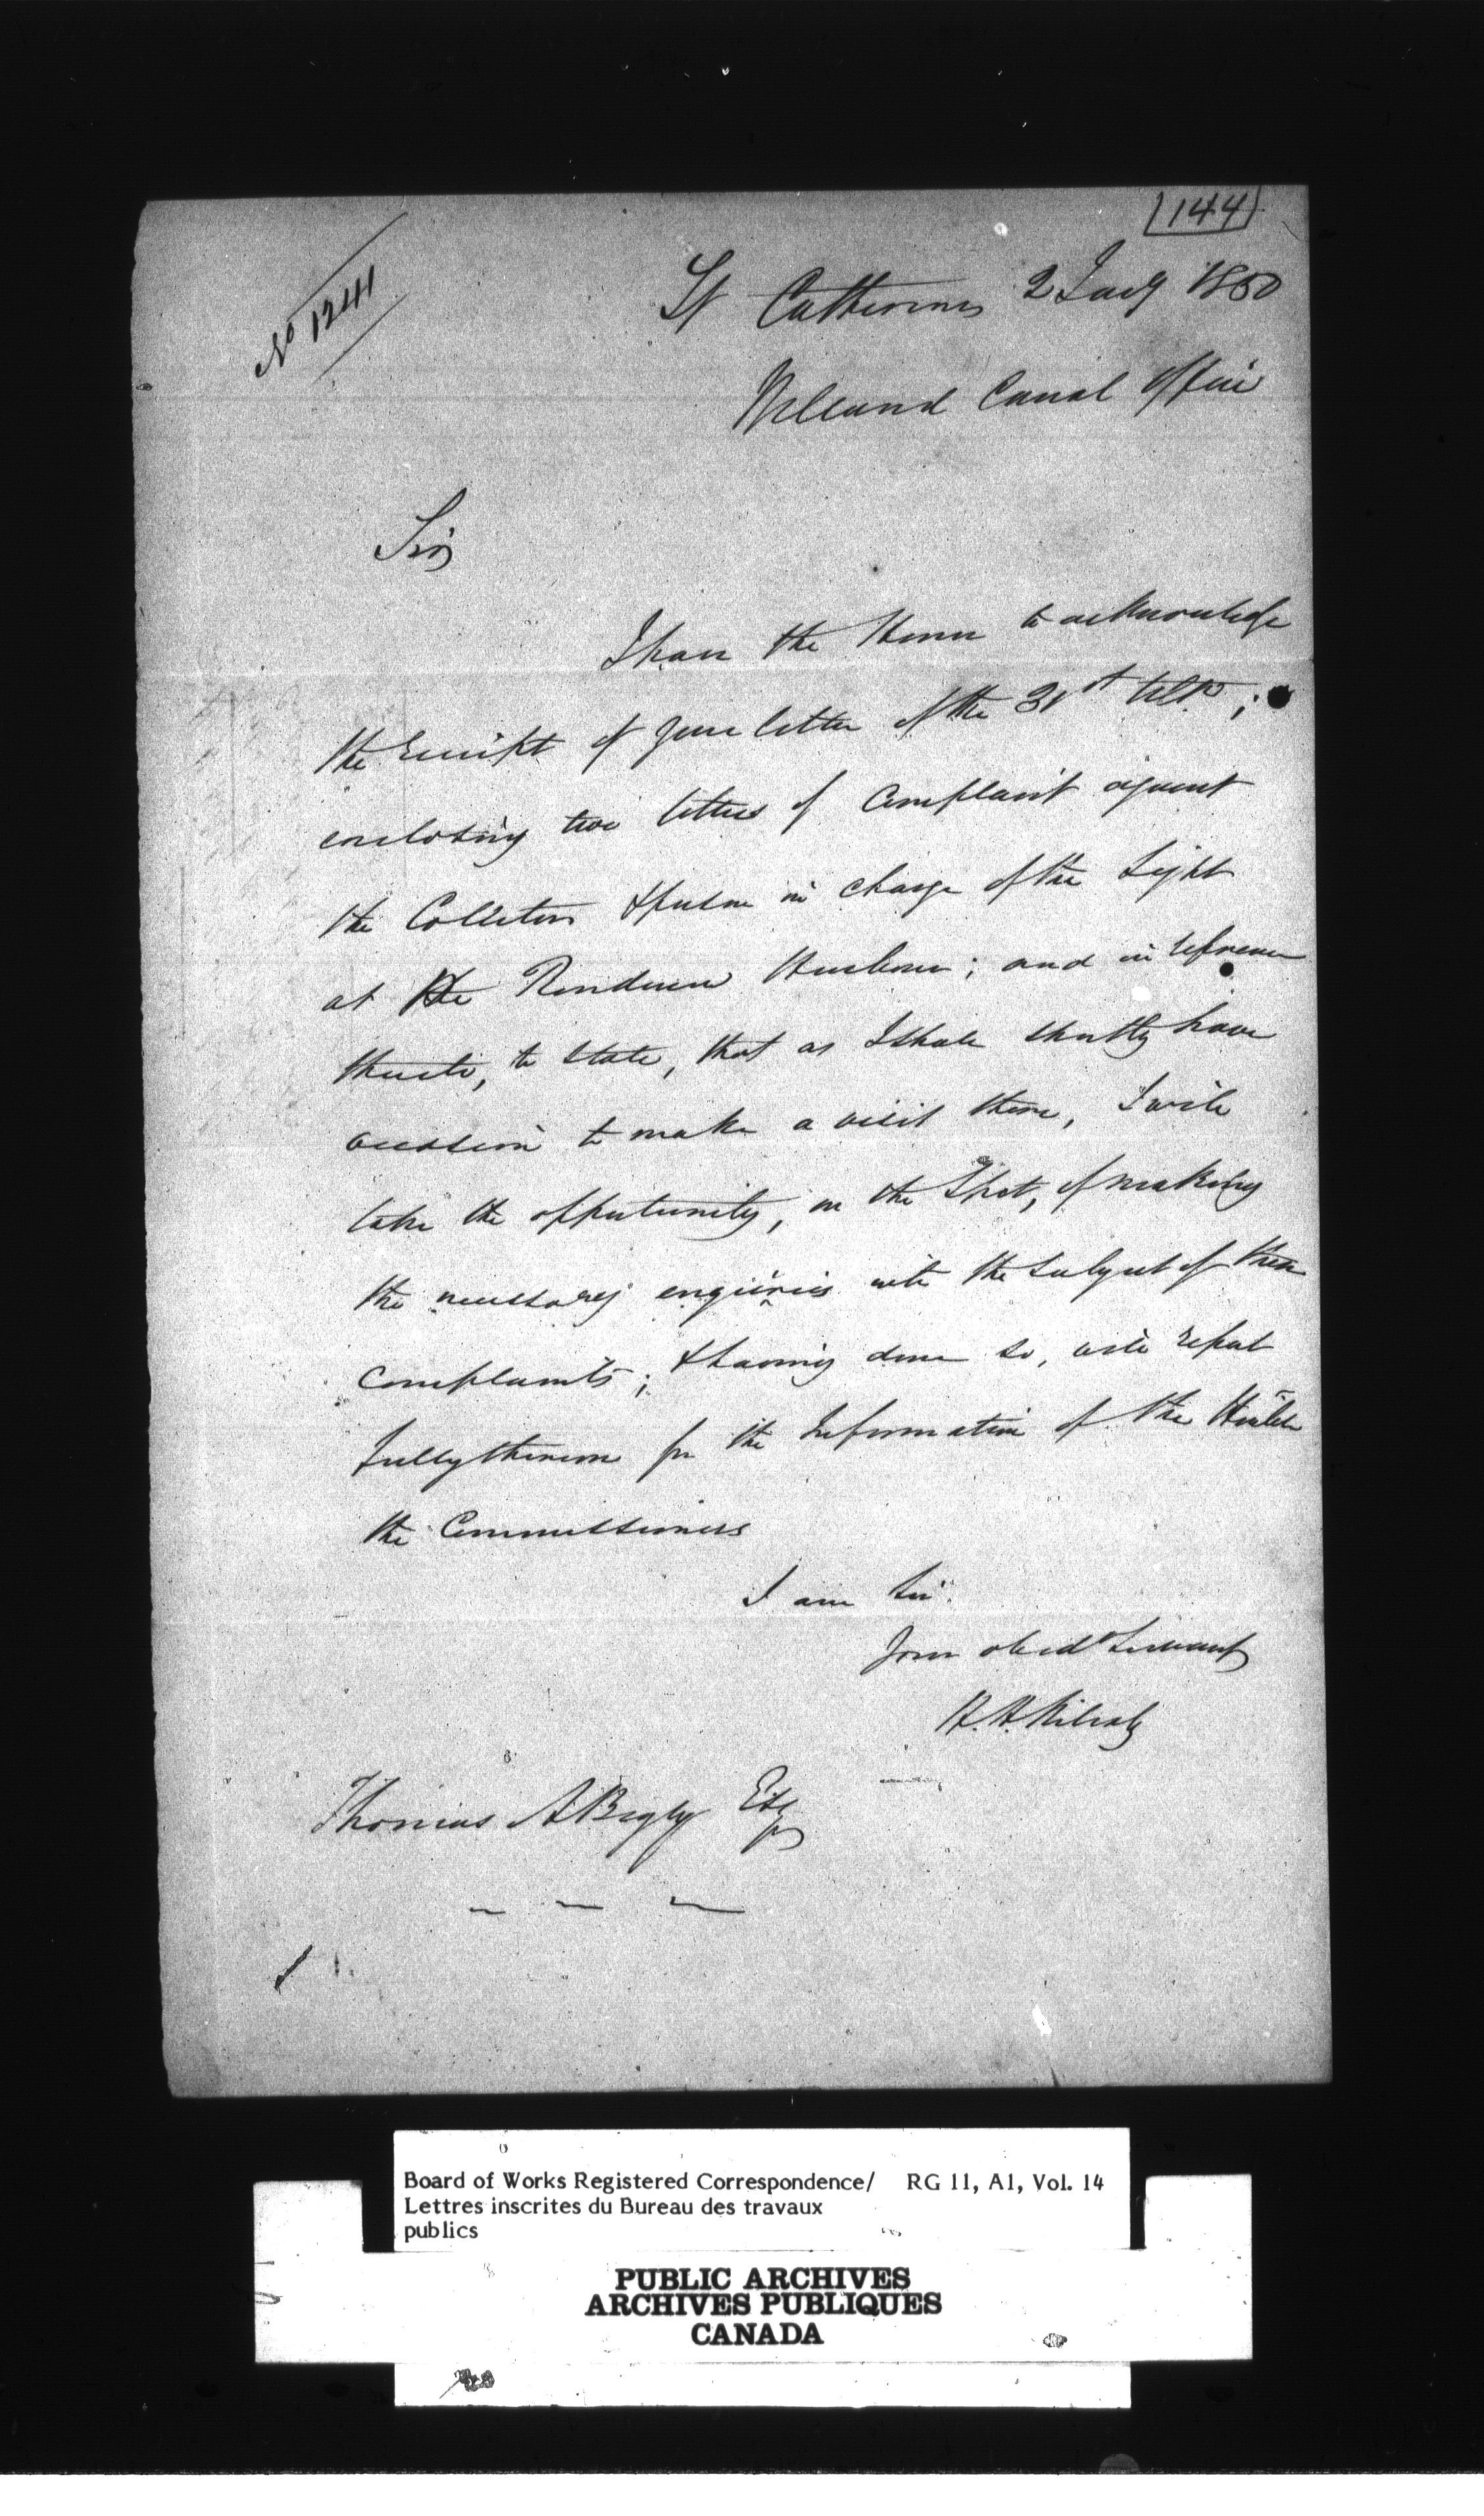 144
No 1241
St Catherines 2 Jany 1850
Welland Canal Office
Sir
I have the Honor to acknowledge
the receipt of your letter of the 31st Ulto;
enclosing two letters of Complaint against
the Collector & person in charge of the Light
at the Rondeau Harbour; and in reference
thereto, to State, that as I shall shortly have
occasion to make a visit there, I will
take the opportunity, on the Spot, of making
the necessary enquiries into the Subject of these
Complaints; & having done so, will report
fully thereon for the Information of the Honble
the Commissioners
I am Sir
Your obedt Servant
H.H. Killaly
Thomas A Begly Esq
Board of Works Registered Correspondence/ RG 11, A1, Vol. 14
Lettres inscrites du Bureau des travaux
publics
PUBLIC ARCHIVES
ARCHIVES PUBLIQUES
CANADA